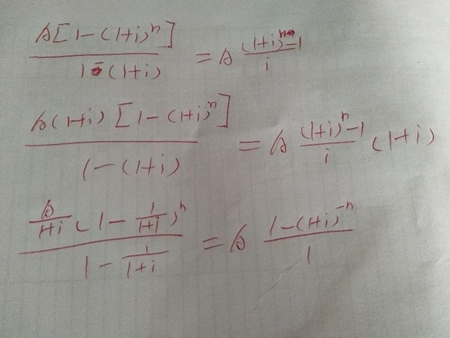 A[1-(1+i)^n] / 1-(1+i) = A ((1+i)^n-1) / i
A(1+i)[1-(1+i)^n] / 1-(1+i) = A ((1+i)^n-1) / i (1+i)
A/1+i (1-1/1+i)^n / 1-1/1+i = A (1-(1+i)^-n) / i